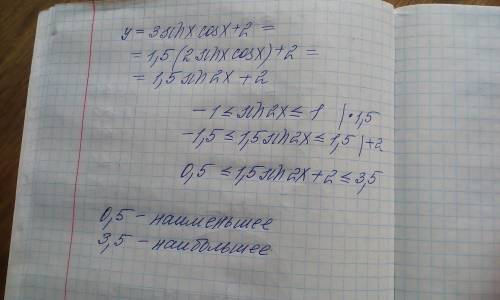 y = 3 sin x cos x + 2 =
= 1,5 (2 sin x cos x) + 2 =
= 1,5 sin 2x + 2
-1 ≤ sin 2x ≤ 1 | · 1,5
-1,5 ≤ 1,5 sin 2x ≤ 1,5 | +2
0,5 ≤ 1,5 sin 2x + 2 ≤ 3,5
0,5 - наименьшее
3,5 - наибольшее